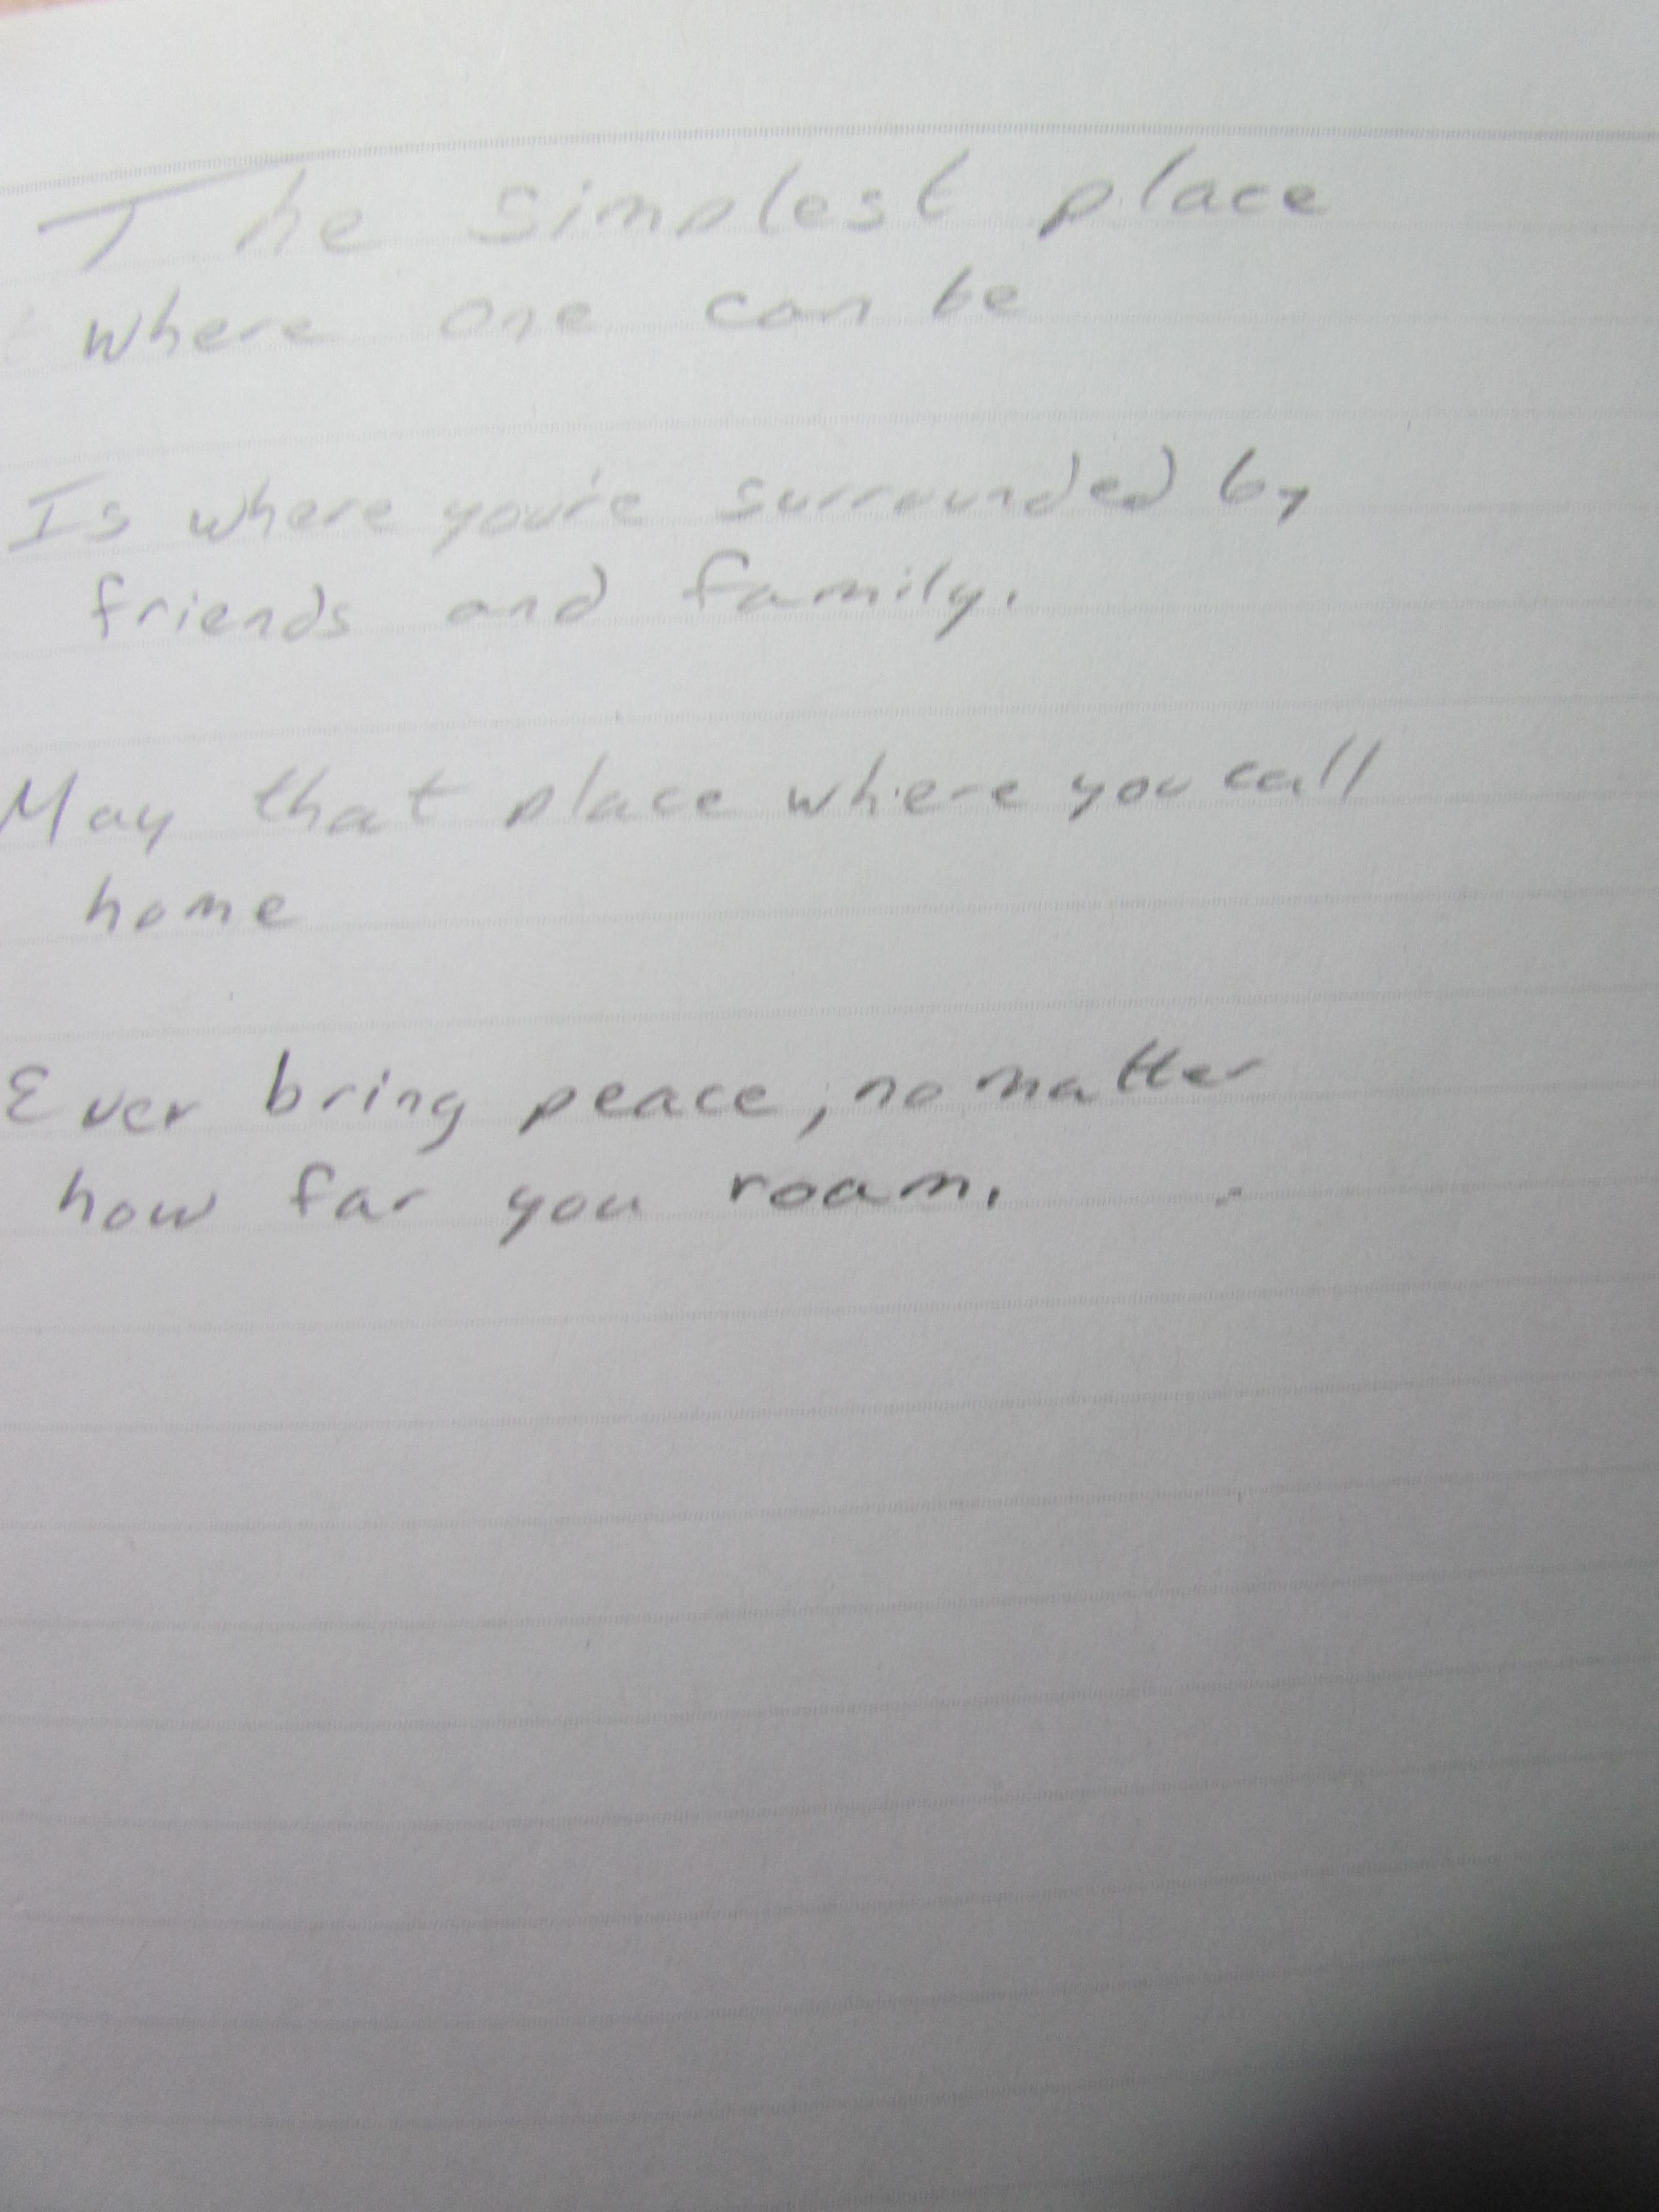 The simplest place
where one can be
Is where you're surrounded by
friends and family.
May that place where you call
home
Ever bring peace, no matter
how far you roam.